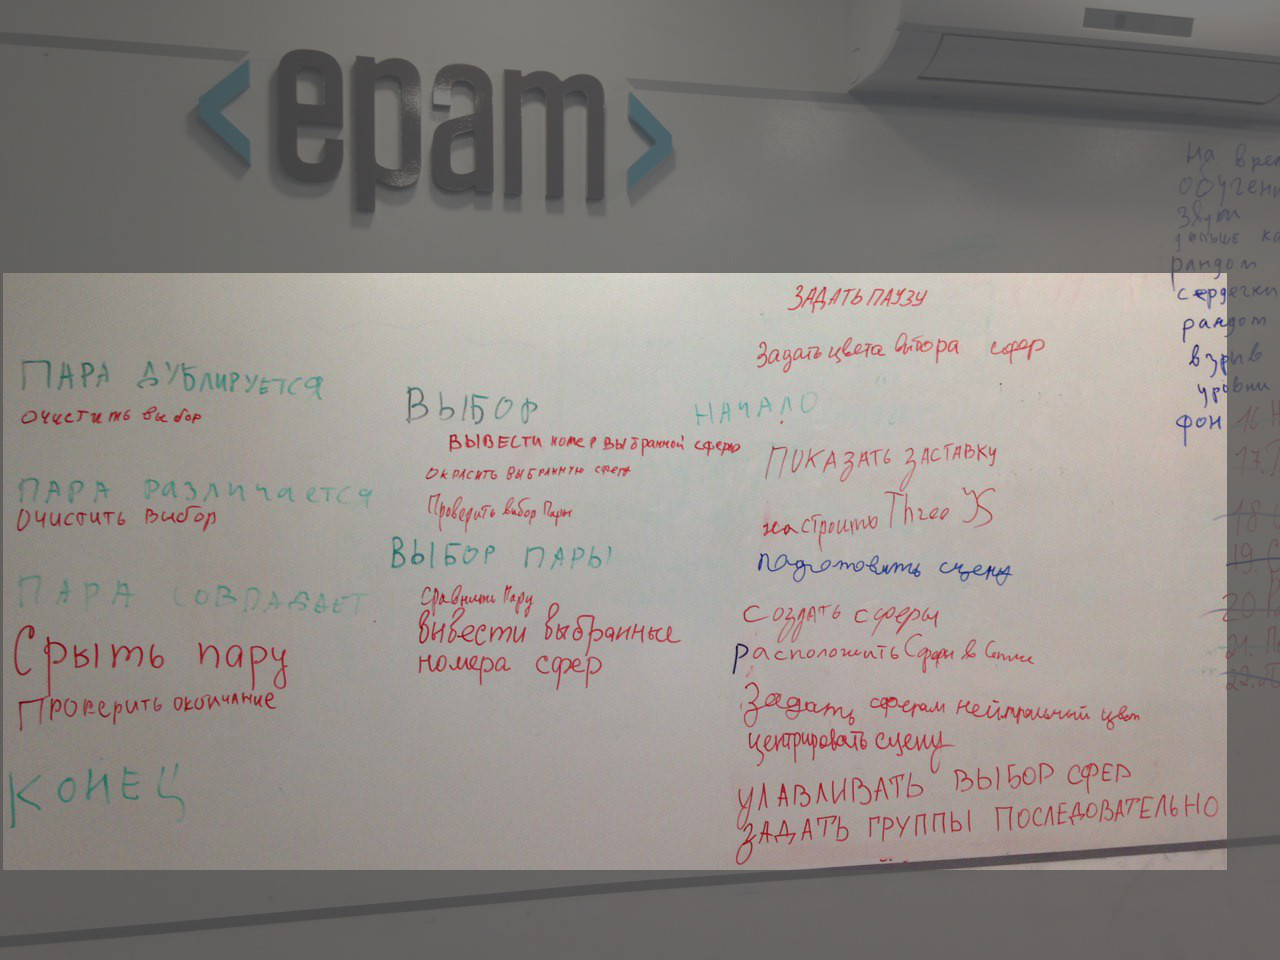 <epam>
ПАРА ДУБЛИРУЕТСЯ
очистить выбор
ПАРА РАЗЛИЧАЕТСЯ
ОЧИСТИТЬ ВЫБОР
ПАРА СОВПАДАЕТ
Скрыть пару
Проверить окончание
КОНЕЦ
ВЫБОР
ВЫВЕСТИ номер выбранной сферы
ОКРАСИТЬ ВЫБРАННУЮ сферу
Проверить выбор Пары
ВЫБОР ПАРЫ
Сравнить Пару
вывести выбранные
номера сфер
ЗАДАТЬ ПАУЗУ
Задать цвета выбора сфер
НАЧАЛО
ПОКАЗАТЬ ЗАСТАВКУ
настроить Three JS
подготовить сцену
создать сферы
расположить Сферы в Сетке
Задать сферам нейтральный цвет
центрировать сцену
УЛАВЛИВАТЬ ВЫБОР СФЕР
ЗАДАТЬ ГРУППЫ ПОСЛЕДОВАТЕЛЬНО
На
звуки
рандом
сердечки
рандом
взрыв
уровни
фон
16.
17.
18
19.
20
21.
22.